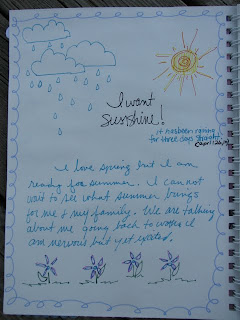 I want
Sunshine!
it has been raining
for three days straight.
I love spring but I am
ready for summer. I cannot
wait to see what summer brings
for me & my family. We are talking
about me going back to work &
am nervous but yet excited.